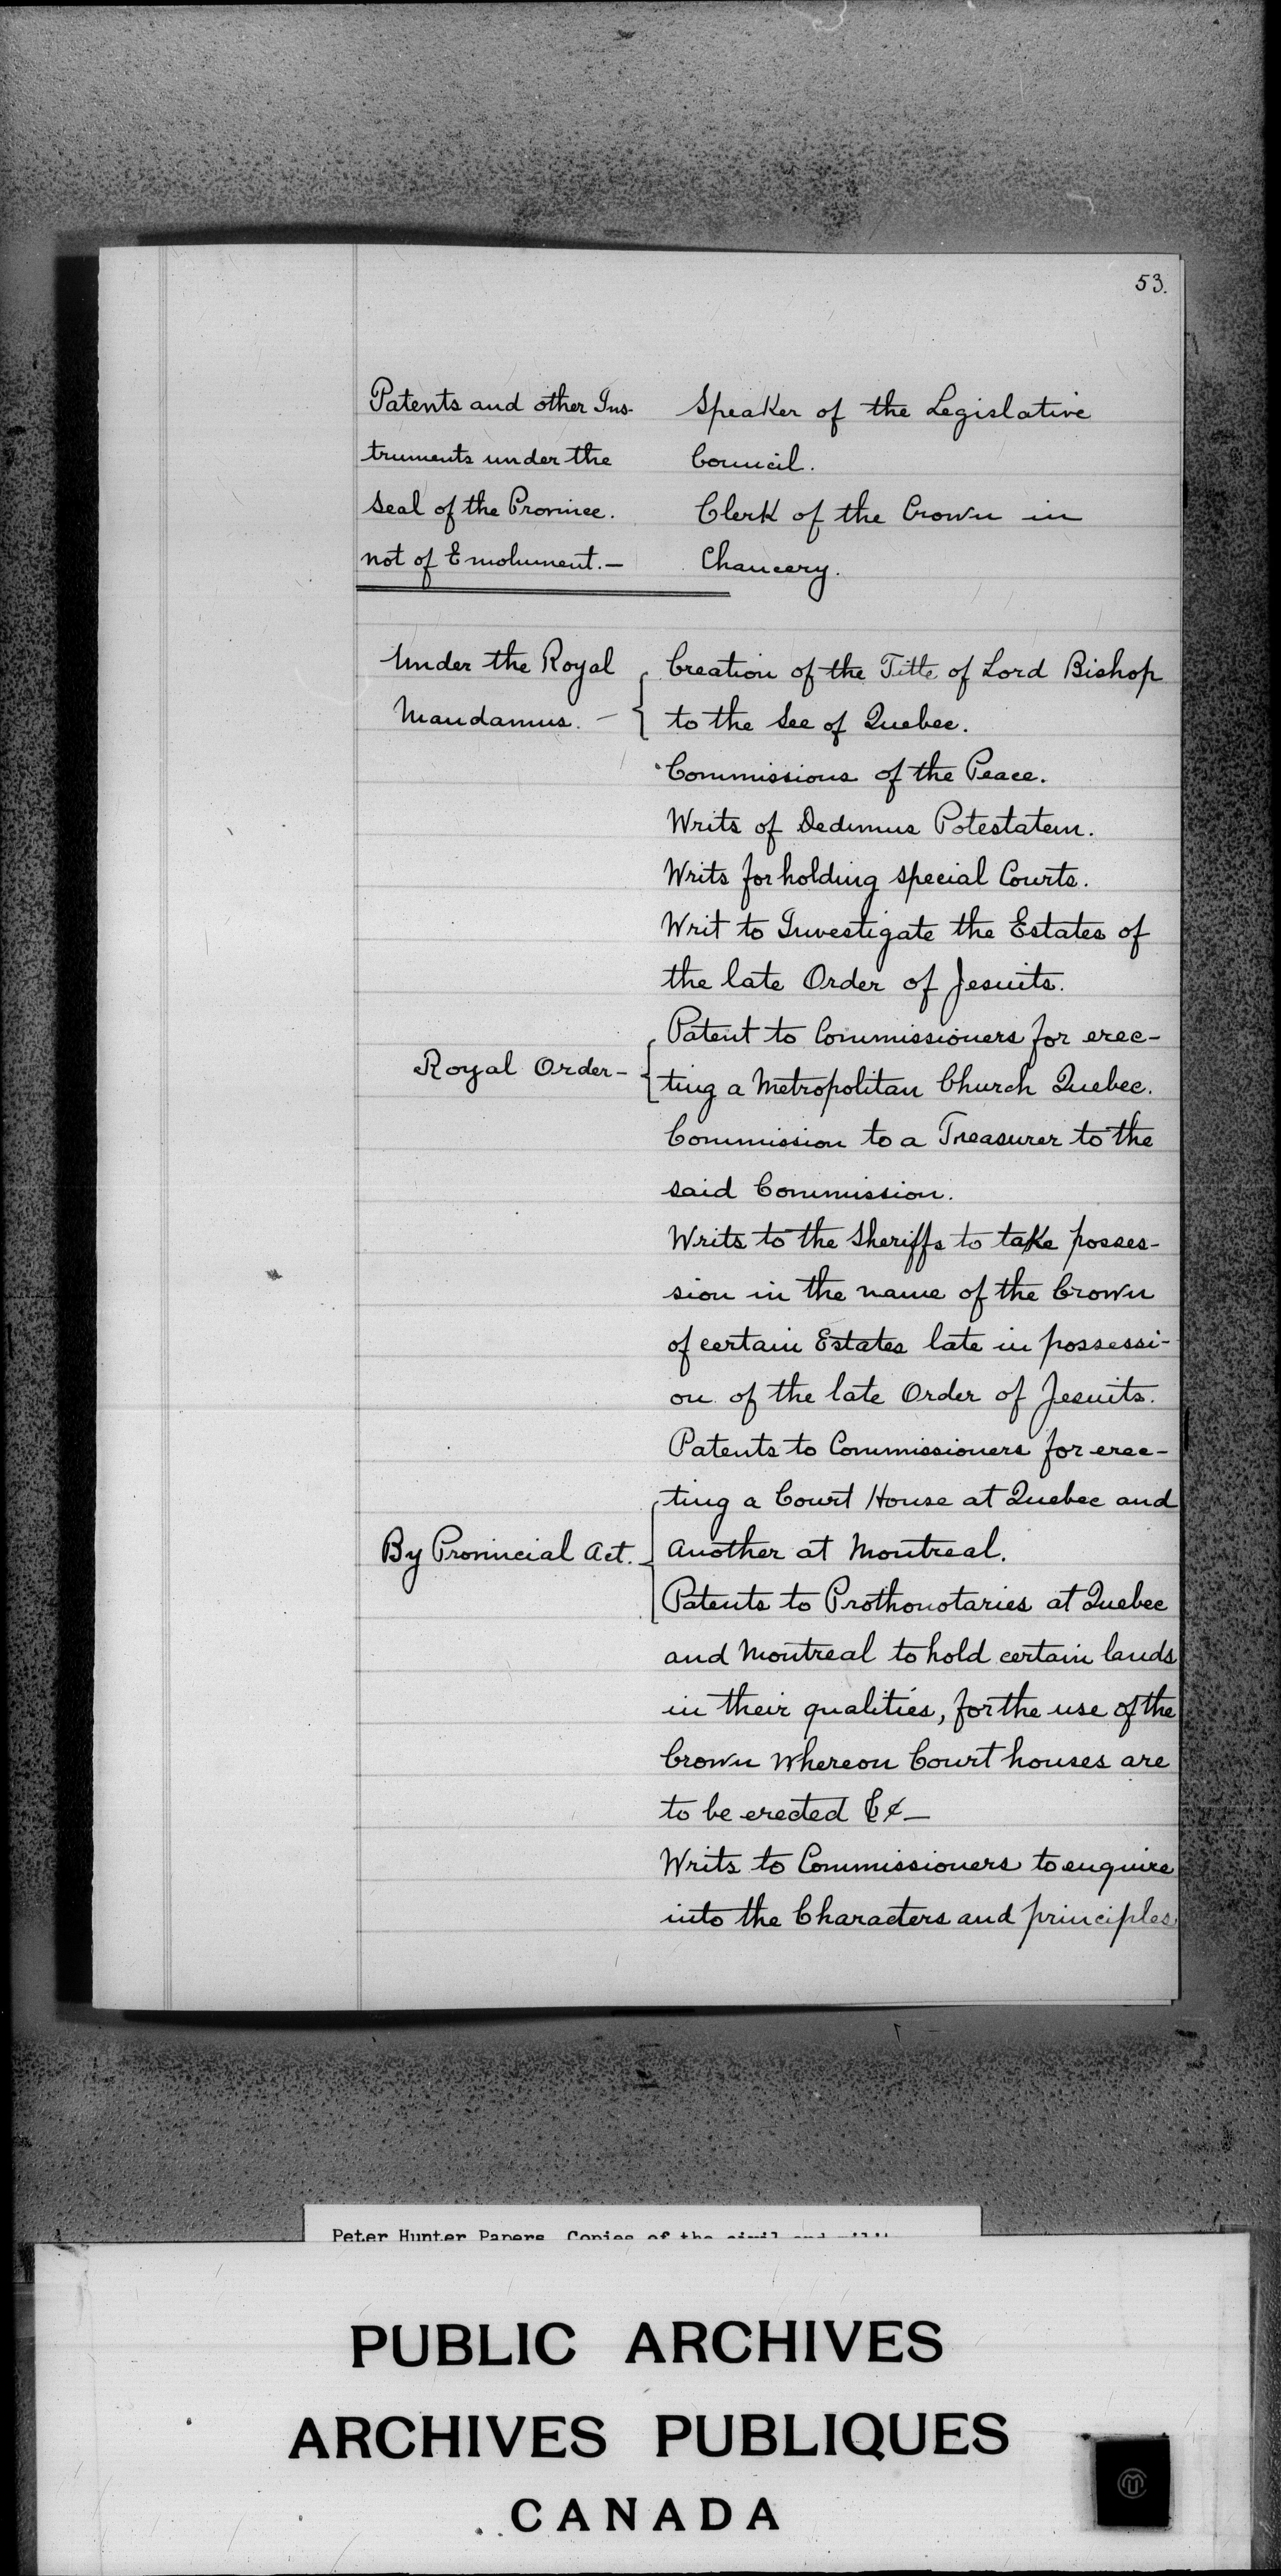 53.
Patents and other Ins-
truments under the
Seal of the Province.
not of Emolument.—
Speaker of the Legislative
Council.
Clerk of the Crown in
Chancery.
Under the Royal
Mandamus. —
Creation of the Title of Lord Bishop
to the See of Quebec.
Commissions of the Peace.
Writs of Dedimus Potestatem.
Writs for holding special Courts.
Writ to Investigate the Estates of
the late Order of Jesuits.
Royal Order-
Patent to Commissioners for erec-
ting a Metropolitan Church Quebec.
Commission to a Treasurer to the
said Commission.
Writs to the Sheriffs to take posses-
sion in the name of the Crown
of certain Estates late in possessi-
on of the late Order of Jesuits.
Patents to Commissioners for erec-
ting a Court House at Quebec and
By Provincial Act.
Another at Montreal.
Patents to Prothonotaries at Quebec
and Montreal to hold certain lands
in their qualities, for the use of the
Crown whereon Court houses are
to be erected &c—
Writs to Commissioners to enquire
into the Characters and principles
Peter Hunter Papers. Copies of the civil and
PUBLIC ARCHIVES
ARCHIVES PUBLIQUES
CANADA